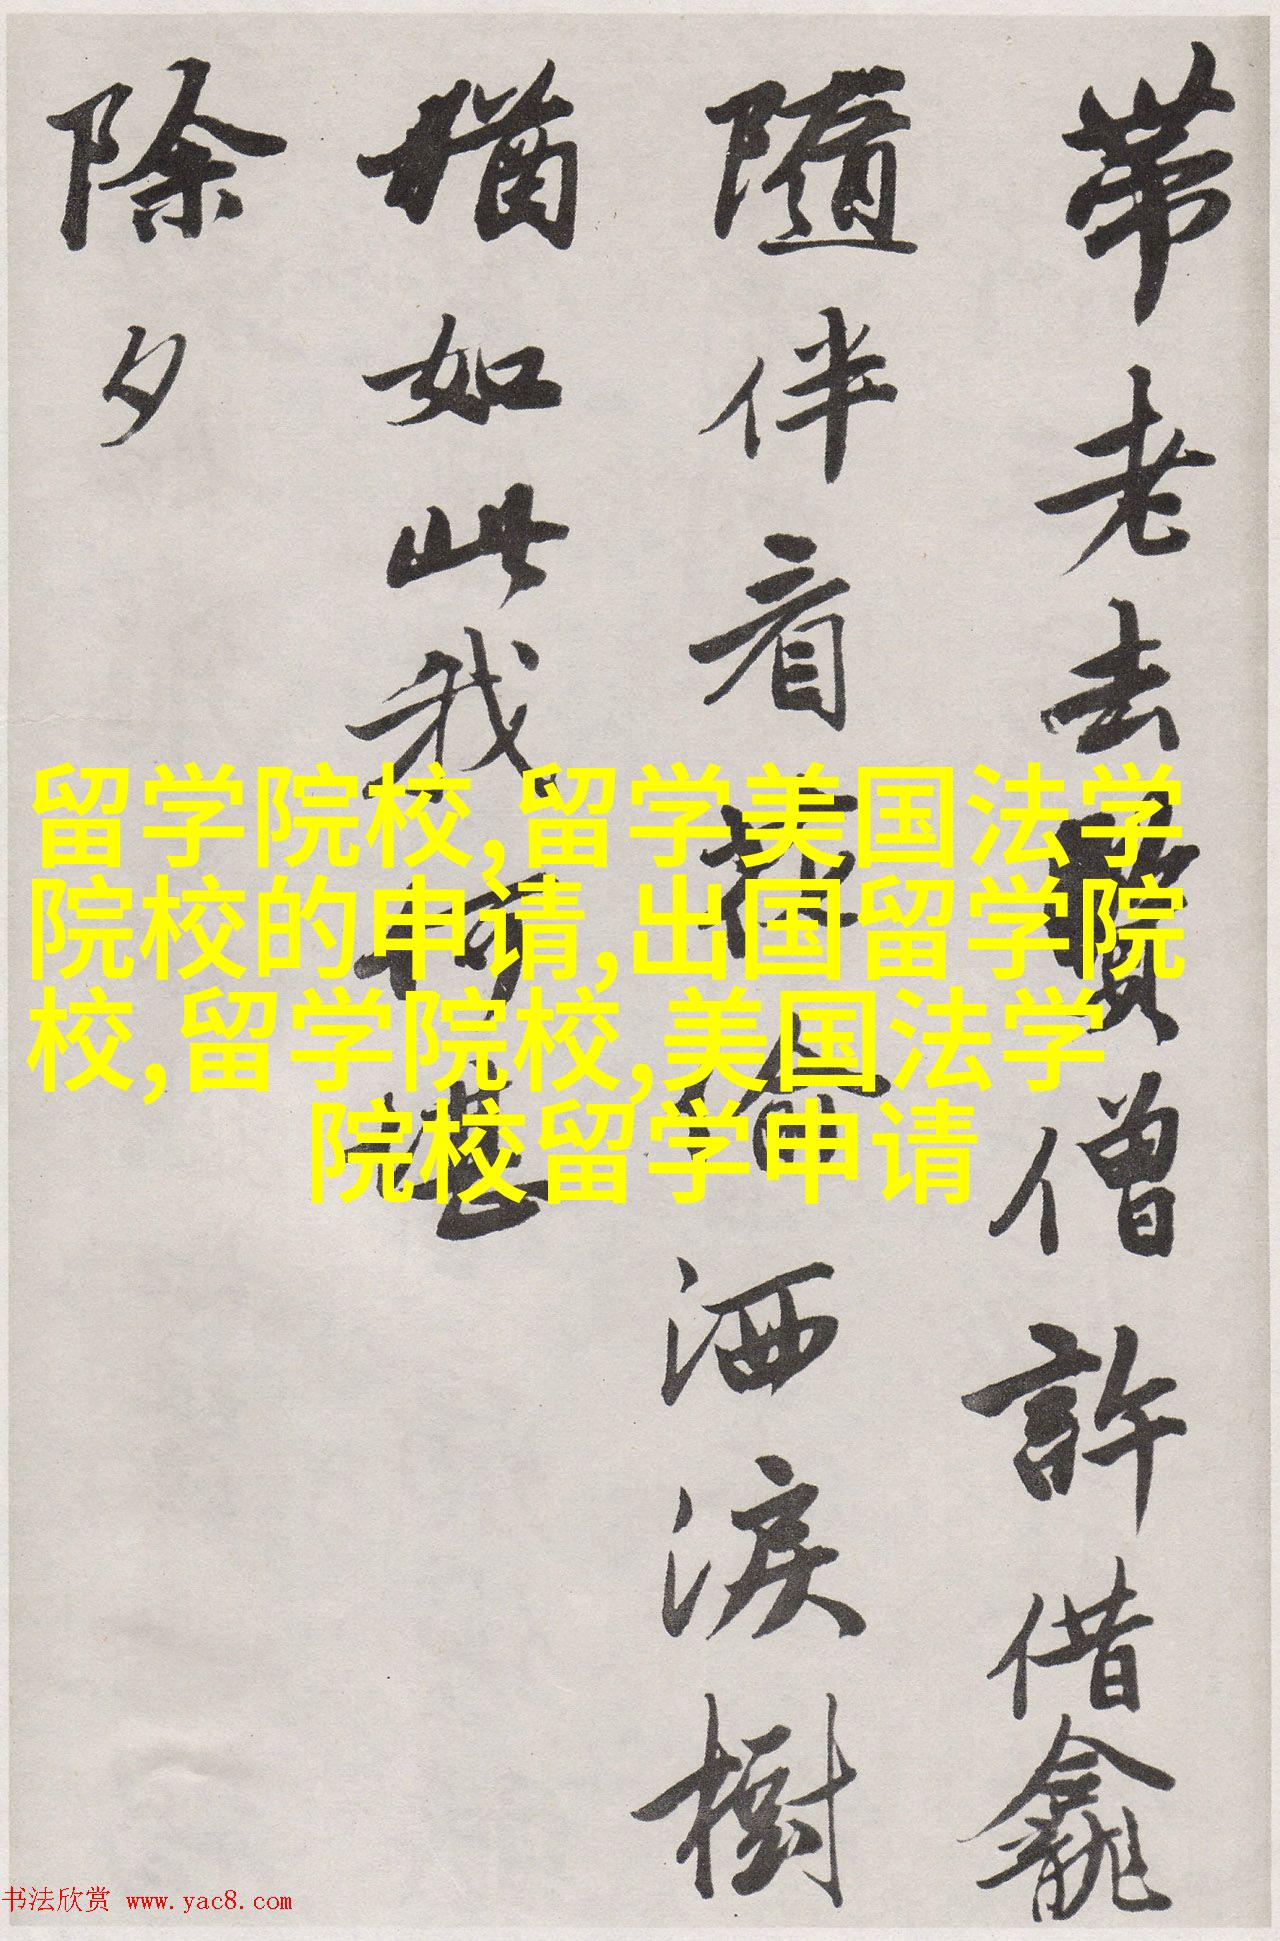 帶老去僧許借龕
隨伴看洒淚樹
猶如此我何堪
除夕
留学院校,留学美国法学
院校的申请,出国留学院
校,留学院校,美国法学
院校留学申请
书法欣赏 www.yac8.com